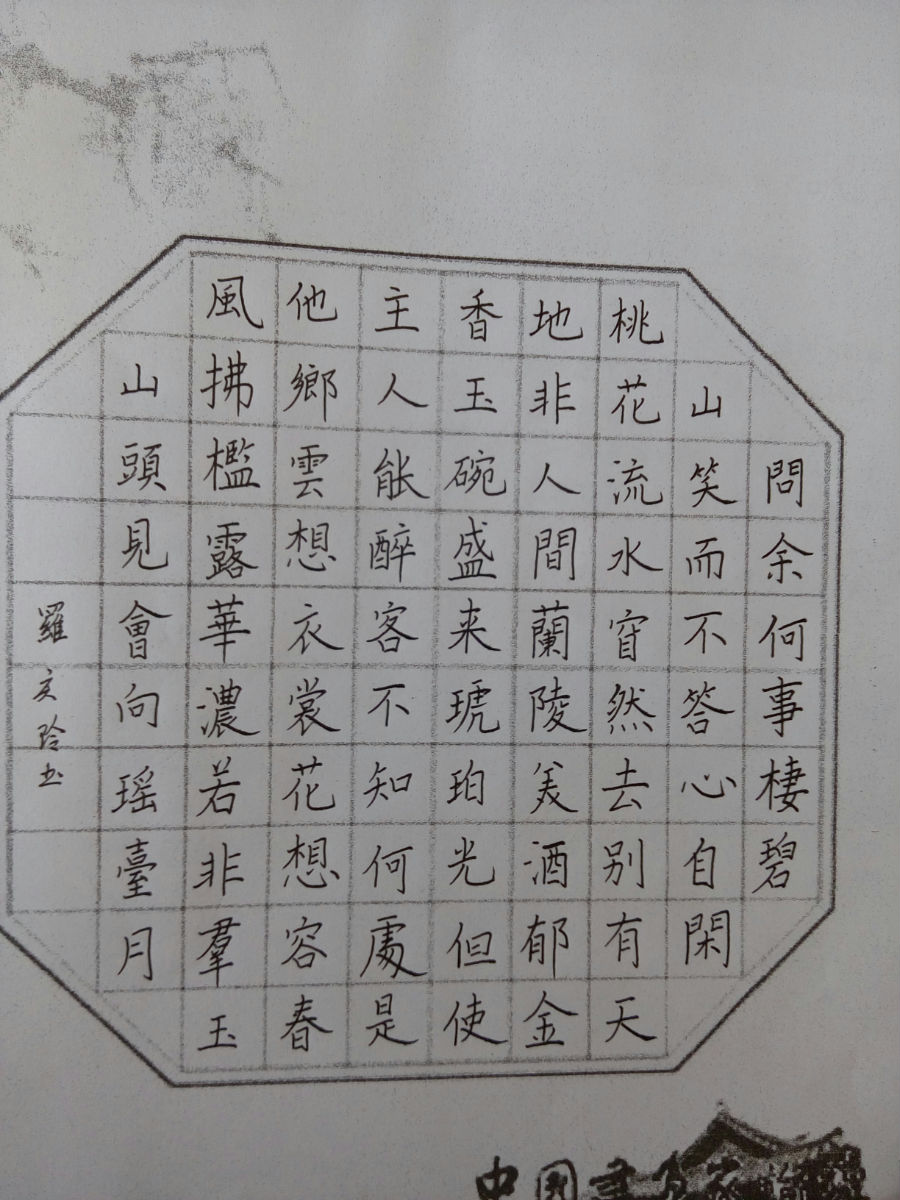 問余何事棲碧
山笑而不答心自閑
桃花流水窅然去别有天
地非人間蘭陵美酒郁金
香玉碗盛来琥珀光但使
主人能醉客不知何處是
他鄉雲想衣裳花想容春
風拂檻露華濃若非羣玉
山頭見會向瑶臺月
羅文玲书
中國書